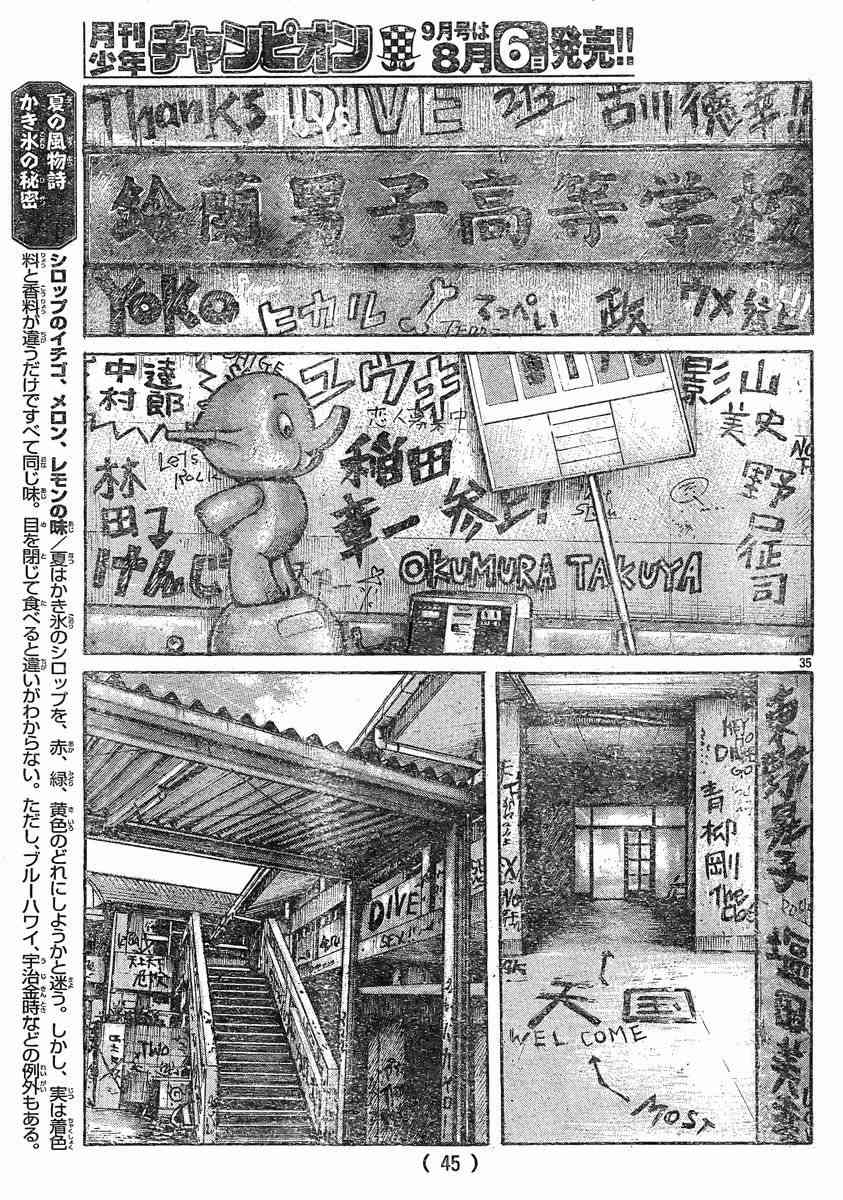 月刊少年チャンピオン 9月号は8月6日発売!!
夏の風物詩
かき氷の秘密
シロップのイチゴ、メロン、レモンの味/夏はかき氷のシロップを、赤、緑、黄色のどれにしようかと迷う。しかし、実は着色
料と香料が違うだけですべて同じ味。目を閉じて食べると違いがわからない。ただし、ブルーハワイ、宇治金時などの例外もある。
Thanks DIVE 212 古川徳幸!!
鈴蘭男子高等学校
YoKo ヒカル てっぺい 政
中村達郎
ユウキ
恋人募集中
影山
美史
Let's Rock
稲田章一参上!
林田
けんじ
野口征司
OKUMURA TAKUYA
35
DIVE
SEX
天上天下
TWO
東野晃子
青柳剛
The
天国
WELCOME
MOST
(45)